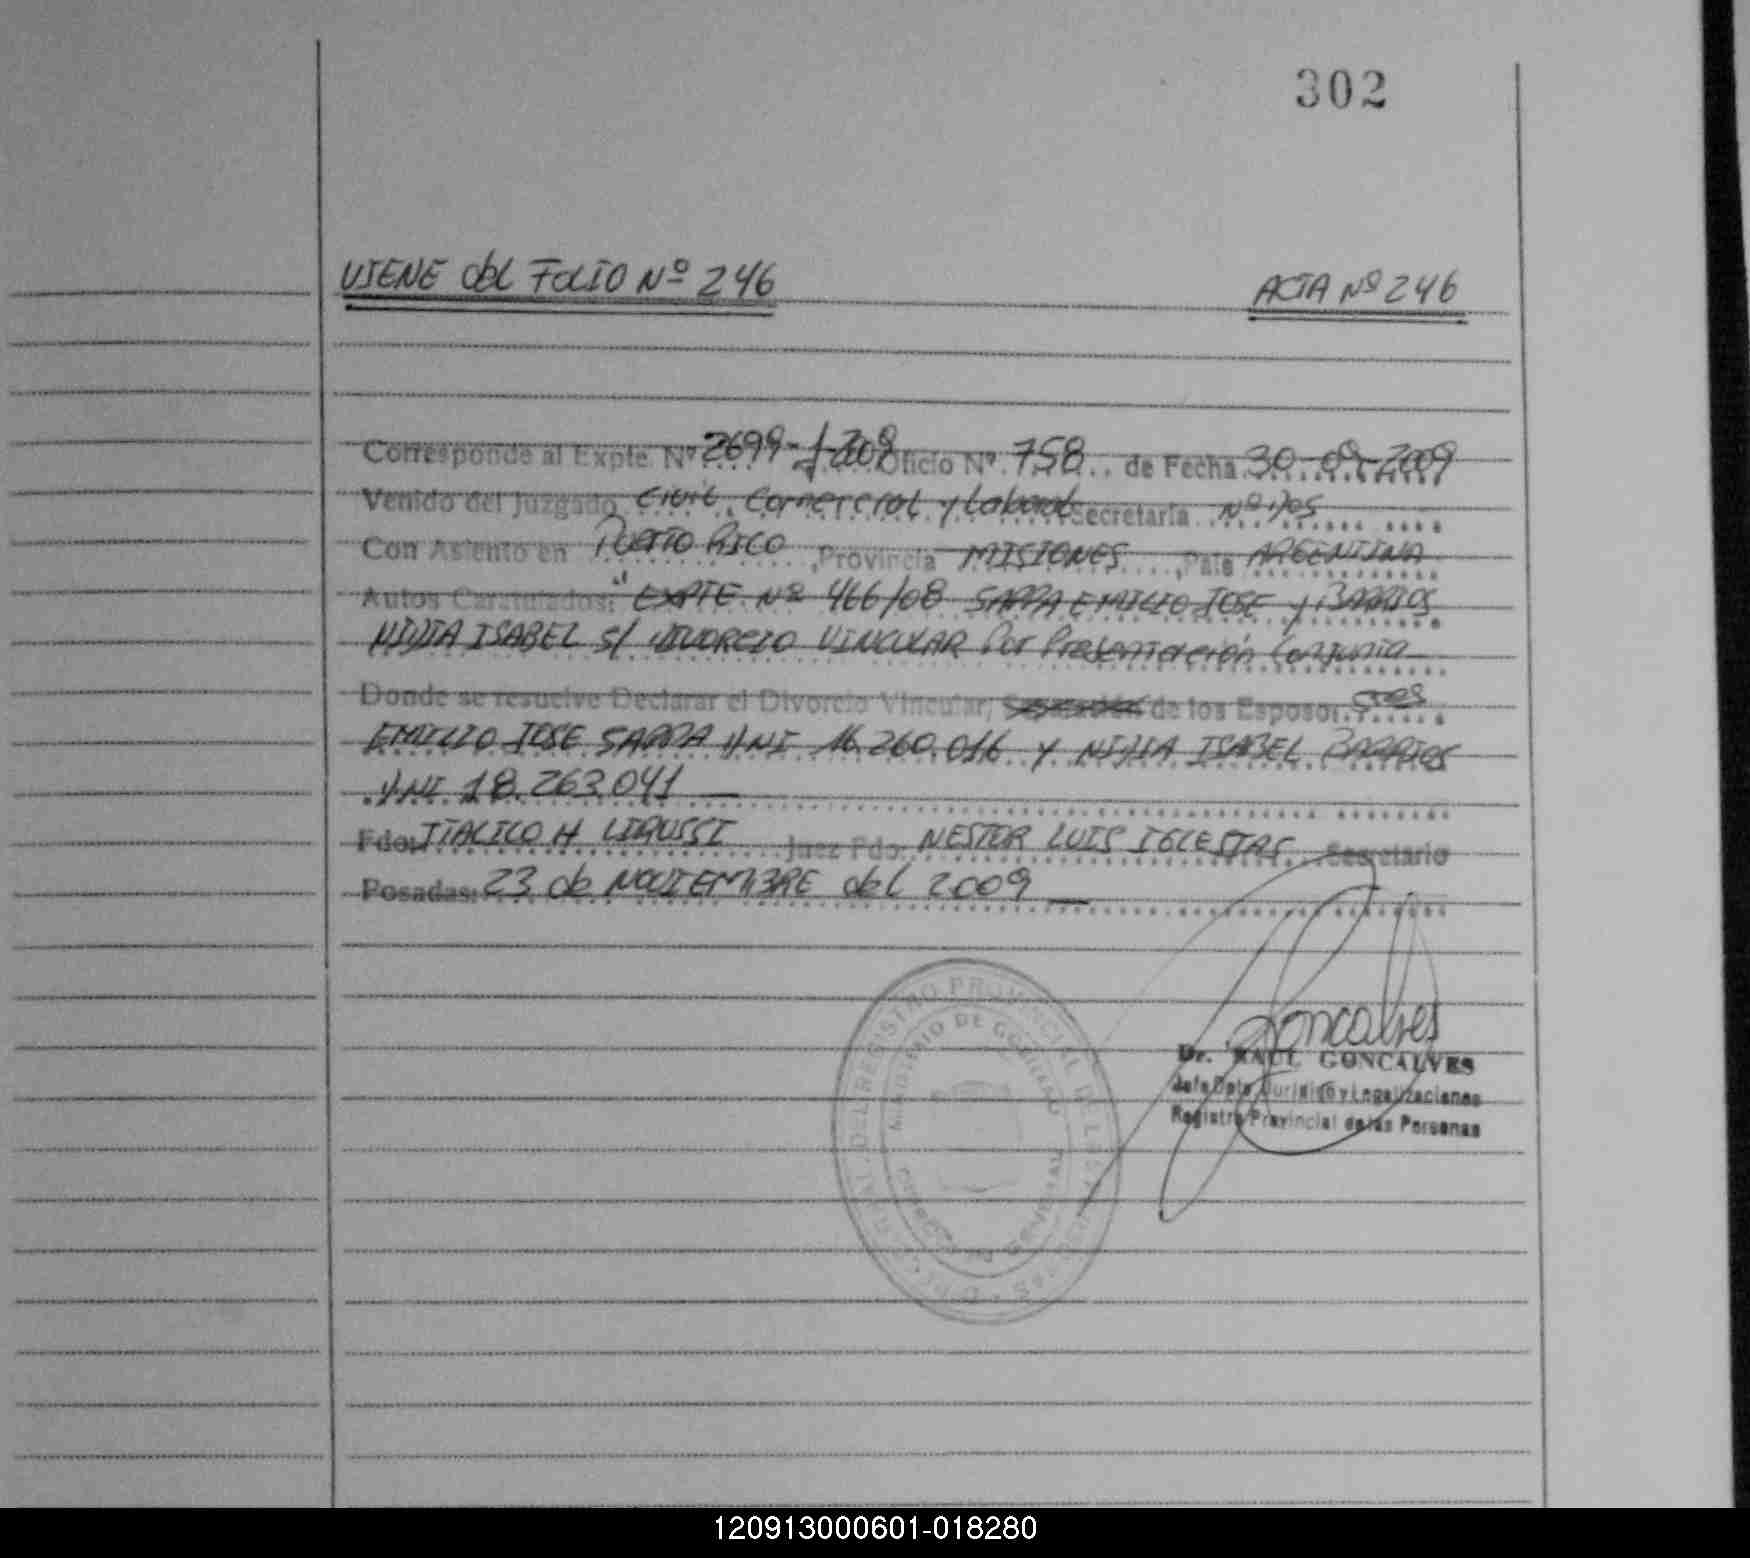 302
VIENE del FOLIO Nº 246 ACTA Nº 246
Corresponde al Expte Nº 2699-J-2009 Oficio Nº 758 de Fecha 30-09-2009
Venido del Juzgado Civil, Comercial y Laboral Secretaria Nº DOS
Con Asiento en Puerto Rico, Provincia MISIONES, Pais ARGENTINA
Autos Caratulados: "EXPTE Nº 466/08 SAPPA EMILIO JOSE y BARRIOS
NIDIA ISABEL S/ DIVORCIO VINCULAR Por Presentación Conjunta
Donde se resuelve Declarar el Divorcio Vincular, de los Esposos
EMILIO JOSE SAPPA DNI 16.260.016 Y NIDIA ISABEL BARRIOS
DNI 18.263.041
Fdo: Juez Fdo: NESTOR LUIS IGLESIAS Secretario
Posadas: 23 de NOVIEMBRE del 2009
REGISTRO PROVINCIAL DE LAS PERSONAS
MINISTERIO DE GOBIERNO
Goncalves
Dr. RAUL GONCALVES
Jefe Dpto Juridico y Legalizaciones
Registro Provincial de las Personas
120913000601-018280